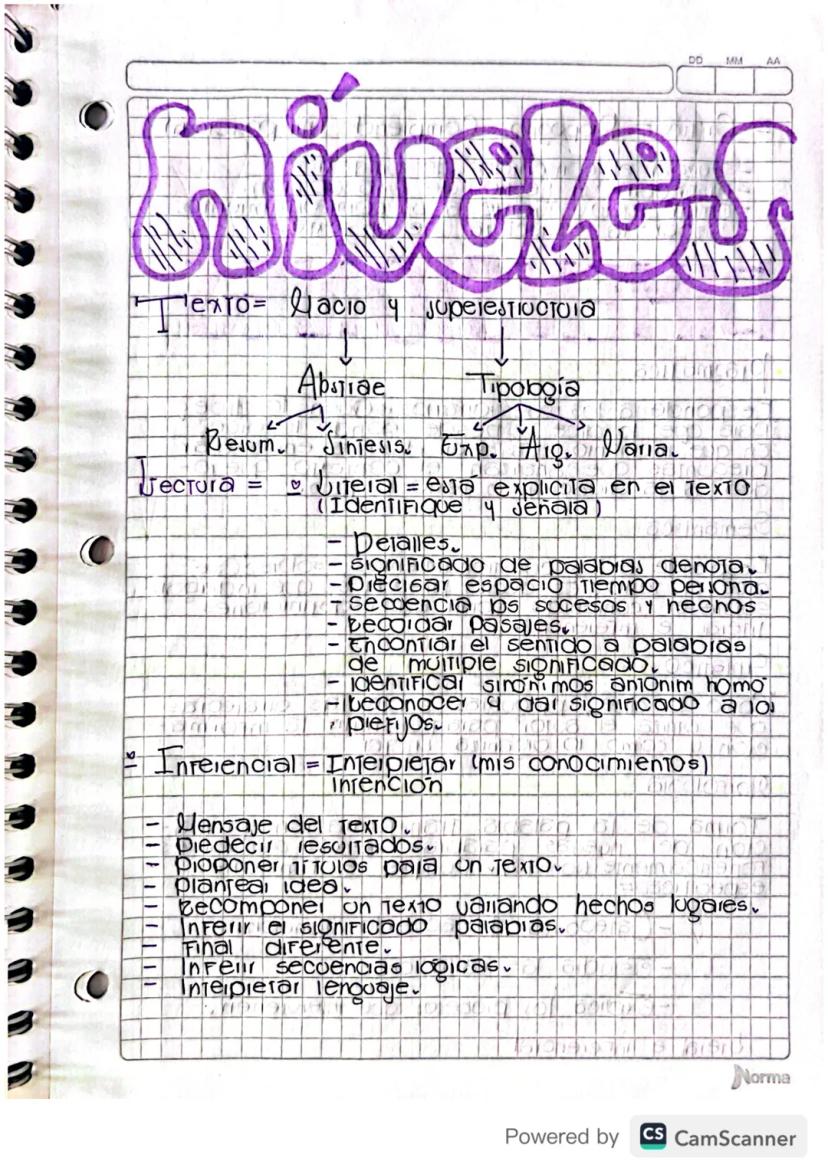 DD MM AA
níveles
Texto = Macro y superestructura
Abstrae Tipología
Resum. Síntesis. Exp. Arg. Narra.
Lectura = Literal = está explicita en el texto
(Identifique y señala)
- Detalles.
- significado de palabras denota.
- Precisar espacio tiempo persona.
- secuencia los sucesos y hechos
- Recordar pasajes.
- Encontrar el sentido a palabras
de multiple significado.
- Identificar sinónimos antonim homo
- Reconocer y dar significado a los
prefijos.
Inferencial = Interpretar (mis conocimientos)
intención
- Mensaje del texto.
- Predecir resultados.
- Proponer títulos para un texto.
- Plantear idea.
- Recomponer un texto variando hechos lugares.
- Inferir el significado palabras.
- Final diferente.
- Inferir secuencias lógicas.
- Interpretar lenguaje.
Norma
Powered by CS CamScanner